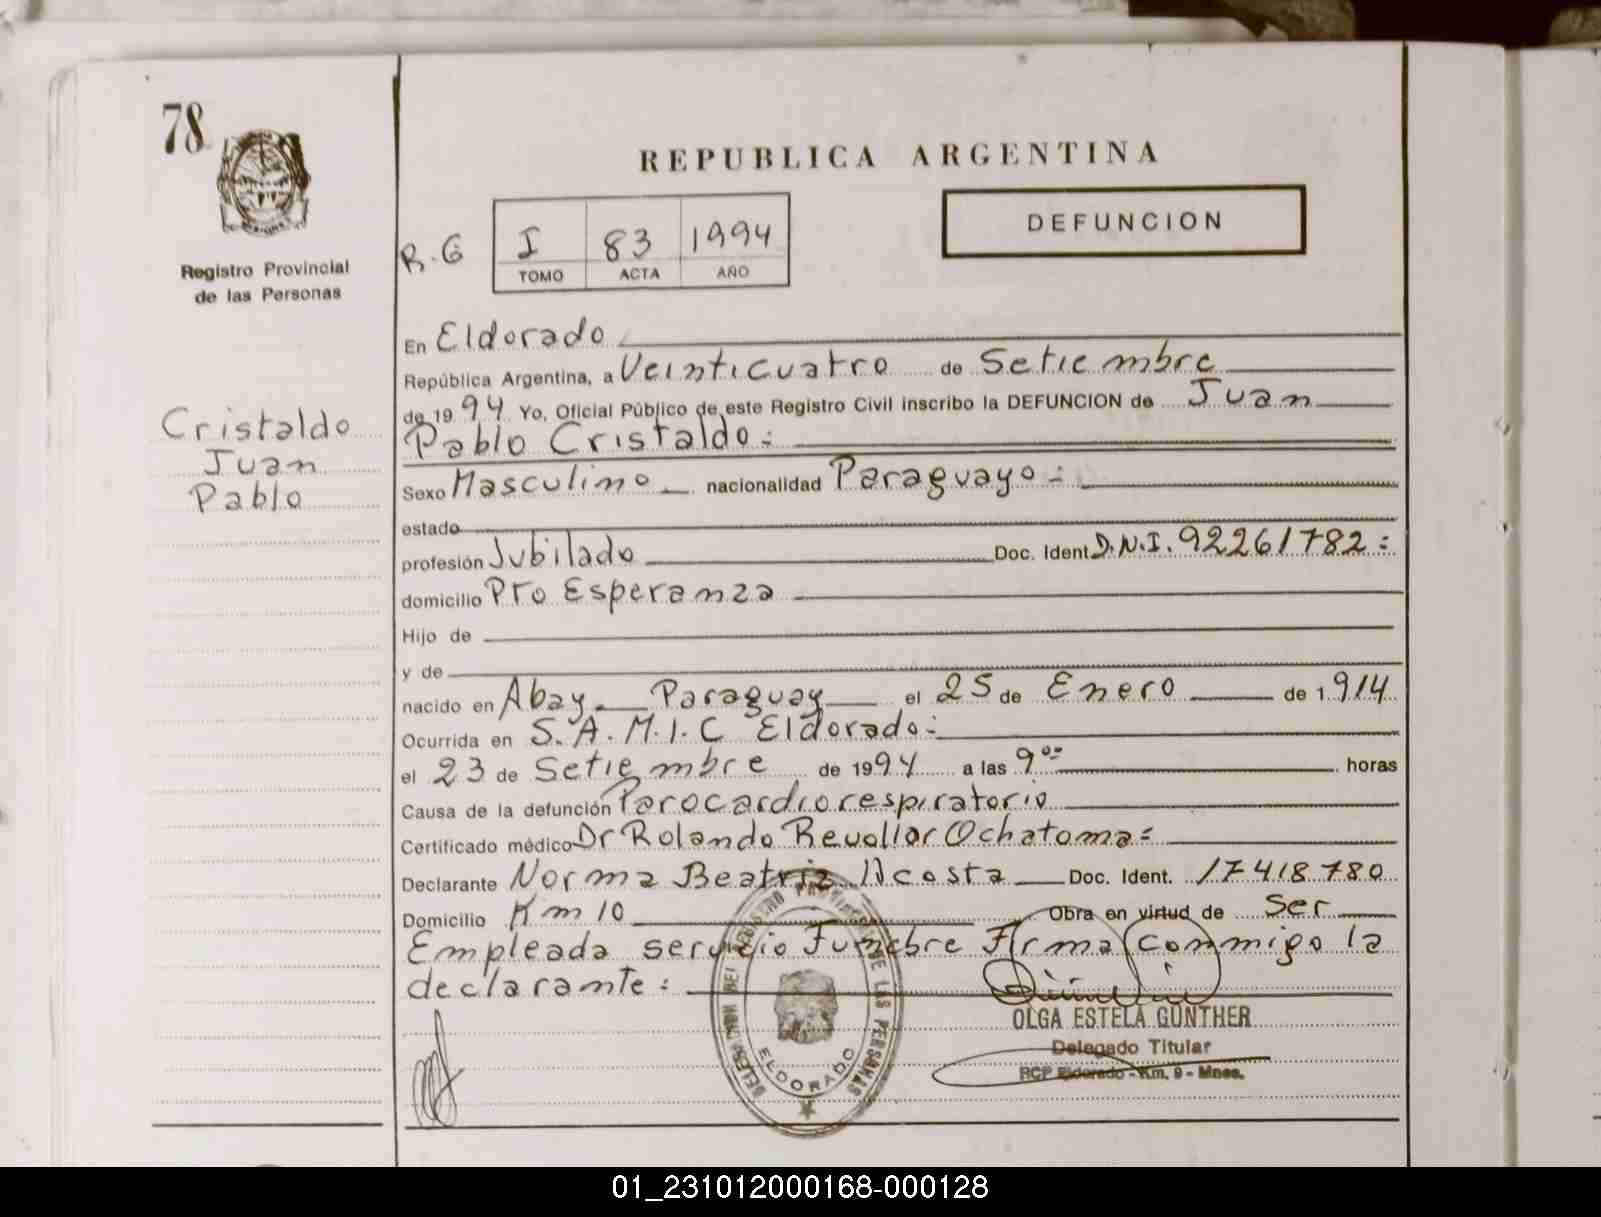 78
REPUBLICA ARGENTINA
DEFUNCION
Registro Provincial
de las Personas
R.G
I 83 1994
TOMO ACTA AÑO
Cristaldo
Juan
Pablo
En Eldorado
República Argentina, a Veinticuatro de Setiembre
de 1994 Yo, Oficial Público de este Registro Civil inscribo la DEFUNCION de Juan
Pablo Cristaldo =
Sexo Masculino nacionalidad Paraguayo =
estado
profesión Jubilado Doc. Ident D.N.I. 92261782 =
domicilio Pto Esperanza
Hijo de
y de
nacido en Abay Paraguay el 25 de Enero de 1.914
Ocurrida en S.A.M.I.C Eldorado =
el 23 de Setiembre de 1994 a las 9 oo horas
Causa de la defunción Parocardiorespiratorio
Certificado médico Dr Rolando Revollar Ochatoma =
Declarante Norma Beatriz Acosta Doc. Ident. 17418780
Domicilio Km 10 Obra en virtud de Ser
Empleada servicio Funebre Firma conmigo la
declarante =
DELEGACION DEL REGISTRO PROVINCIAL DE LAS PERSONAS
ELDORADO
OLGA ESTELA GUNTHER
Delegado Titular
RCP Eldorado - Km. 9 - Mnes.
01_231012000168-000128